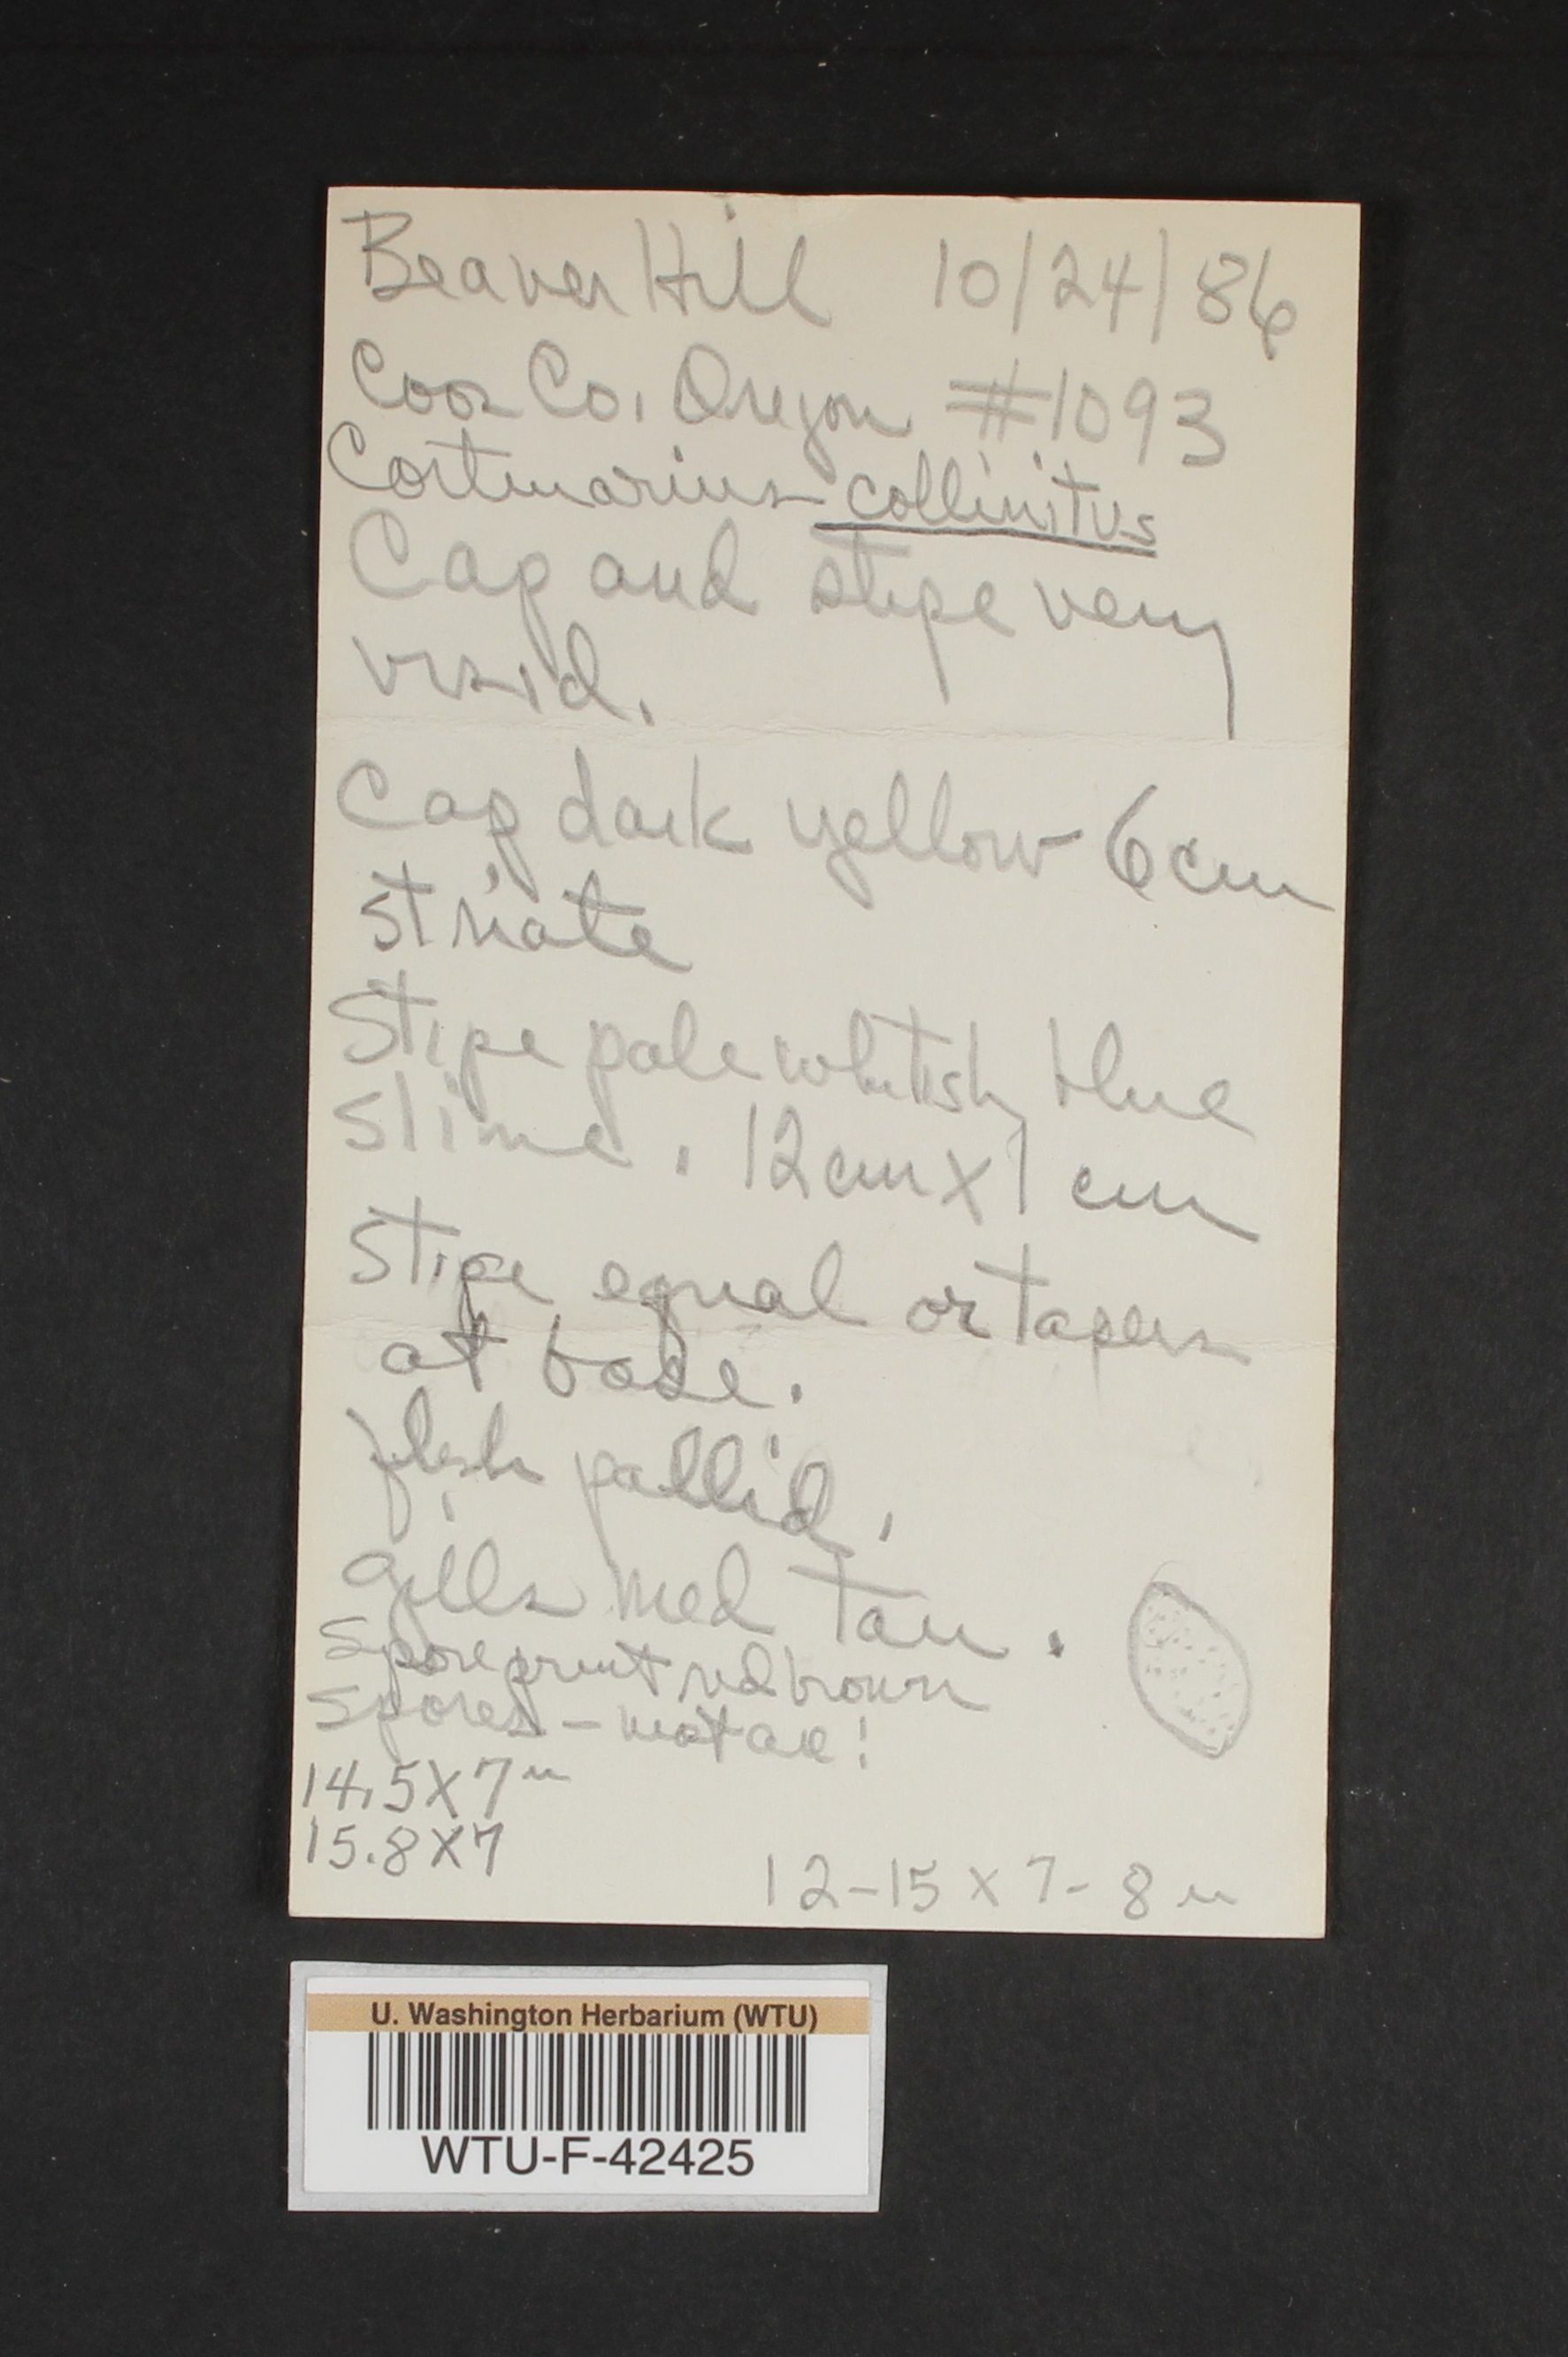 Beaver Hill 10/24/86
Coos Co. Oregon #1093
Cortinarius collinitus
Cap and stipe very
visid.
Cap dark yellow 6 cm
striate
Stipe pale whitish blue
slime. 12 cm x 1 cm
Stipe equal or tapers
at base.
flesh pallid.
Gills med tan.
Spore print red brown
Spores -
14.5 X 7 u
15.8 X 7
12-15 x 7-8 u
U. Washington Herbarium (WTU)
WTU-F-42425